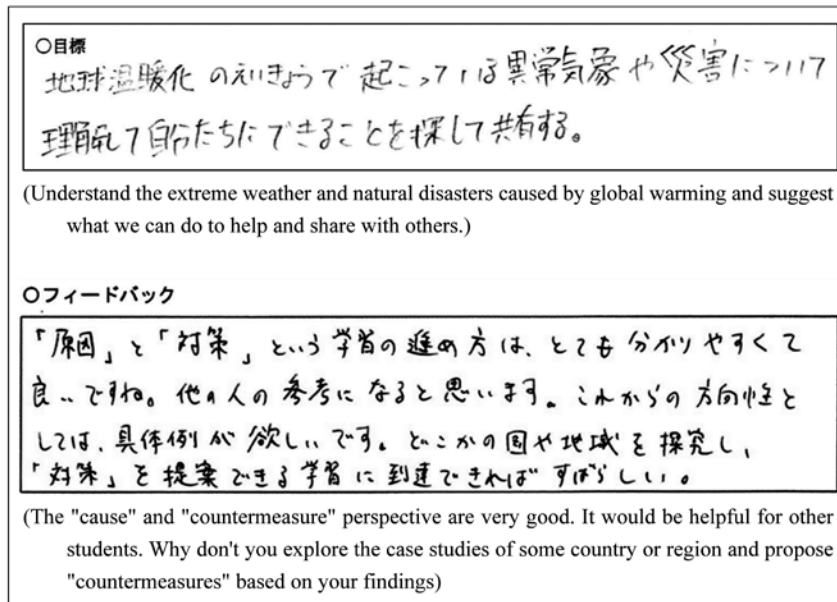 ○目標
地球温暖化のえいきょうで起こっている異常気象や災害について
理解して自分たちにできることを探して共有する。
(Understand the extreme weather and natural disasters caused by global warming and suggest
what we can do to help and share with others.)
○フィードバック
「原因」と「対策」という学習の進め方は、とても分かりやすくて
良いですね。他の人の参考になると思います。これからの方向性と
しては、具体例が欲しいです。どこかの国や地域を探究し、
「対策」を提案できる学習に到達できればすばらしい。
(The "cause" and "countermeasure" perspective are very good. It would be helpful for other
students. Why don't you explore the case studies of some country or region and propose
"countermeasures" based on your findings)